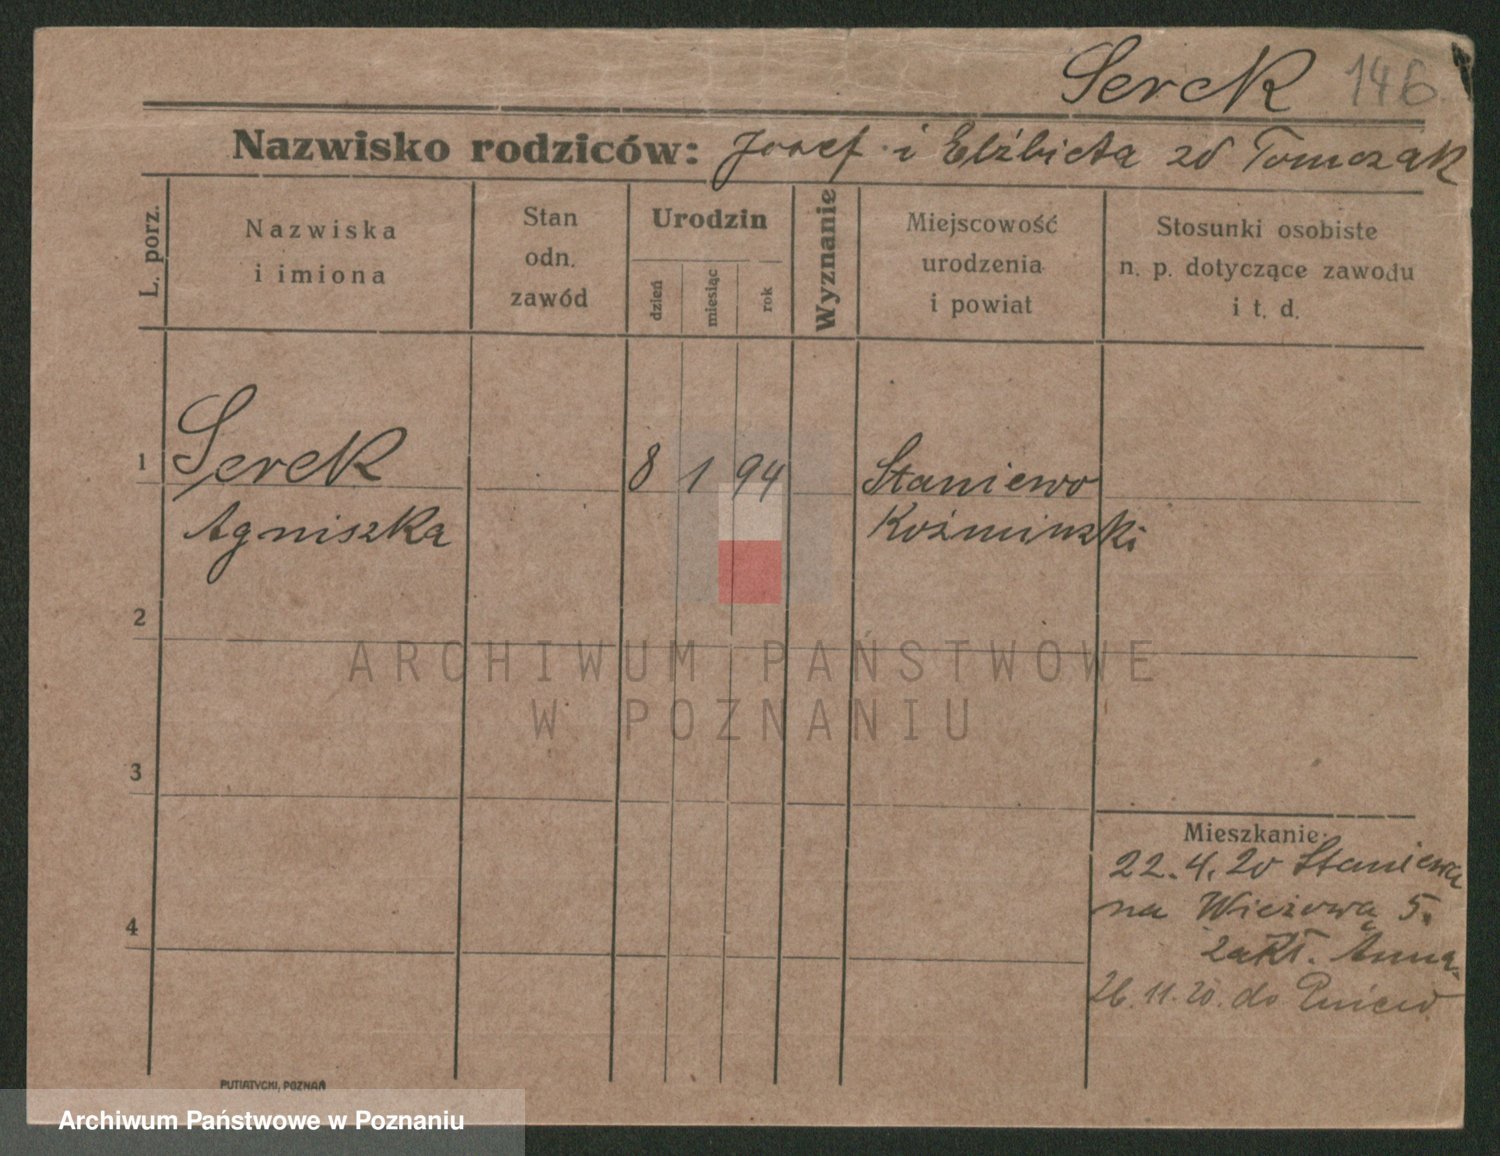 Serek 146
Nazwisko rodziców: Josef i Elżbieta zd Tomczak
L. porz.
Nazwiska
i imiona
Stan
odn.
zawód
Urodzin
dzień
miesiąc
rok
Wyznanie
Miejscowość
urodzenia
i powiat
Stosunki osobiste
n. p. dotyczące zawodu
i t. d.
1 Serek 8 1 94 Staniewo
Agniszka Koźminski
2
ARCHIWUM PAŃSTWOWE
W POZNANIU
3
Mieszkanie:
22.4.20 Staniewa
na Wieżową 5.
zakł. Anna
4
26.11.20. do Pniew
PUTIATYCKI, POZNAŃ
Archiwum Państwowe w Poznaniu